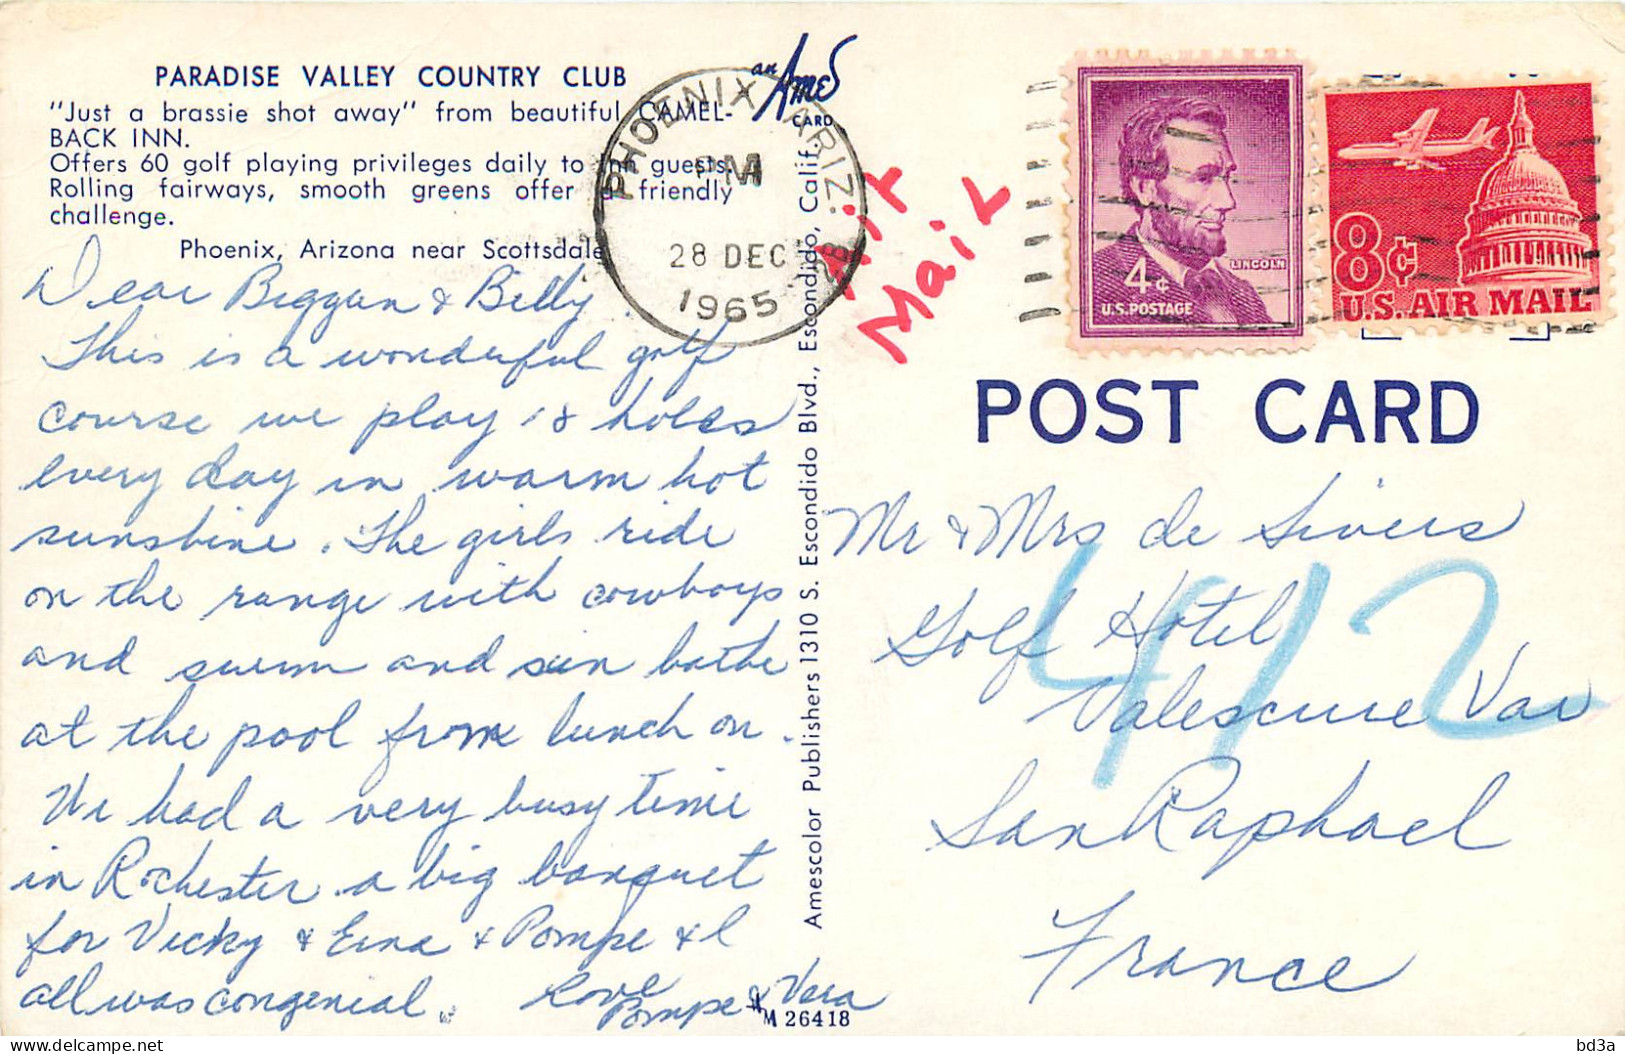 PARADISE VALLEY COUNTRY CLUB
"Just a brassie shot away" from beautiful CAMEL-
BACK INN.
Offers 60 golf playing privileges daily to inn guests.
Rolling fairways, smooth greens offer a friendly
challenge.
Phoenix, Arizona near Scottsdale
an Ames
CARD
PHOENIX, ARIZ.
PM
28 DEC
1965
Dear Biggan & Billy.
This is a wonderful golf
course we play 18 holes
every day in warm hot
sunshine. The girls ride
on the range with cowboys
and swim and sun bathe
at the pool from lunch on.
We had a very busy time
in Rochester a big banquet
for Vicky & Eina & Pompe & I
all was congenial. Love
Pompe & Vera
M 26418
Amescolor Publishers 1310 S. Escondido Blvd., Escondido, Calif.
Air
Mail
LINCOLN
4¢
U.S. POSTAGE
8¢
U.S. AIR MAIL
POST CARD
Mr & Mrs de Sivers
Golf Hotel
Valescure Var
San Raphael
France
412
delcampe.net
bd3a